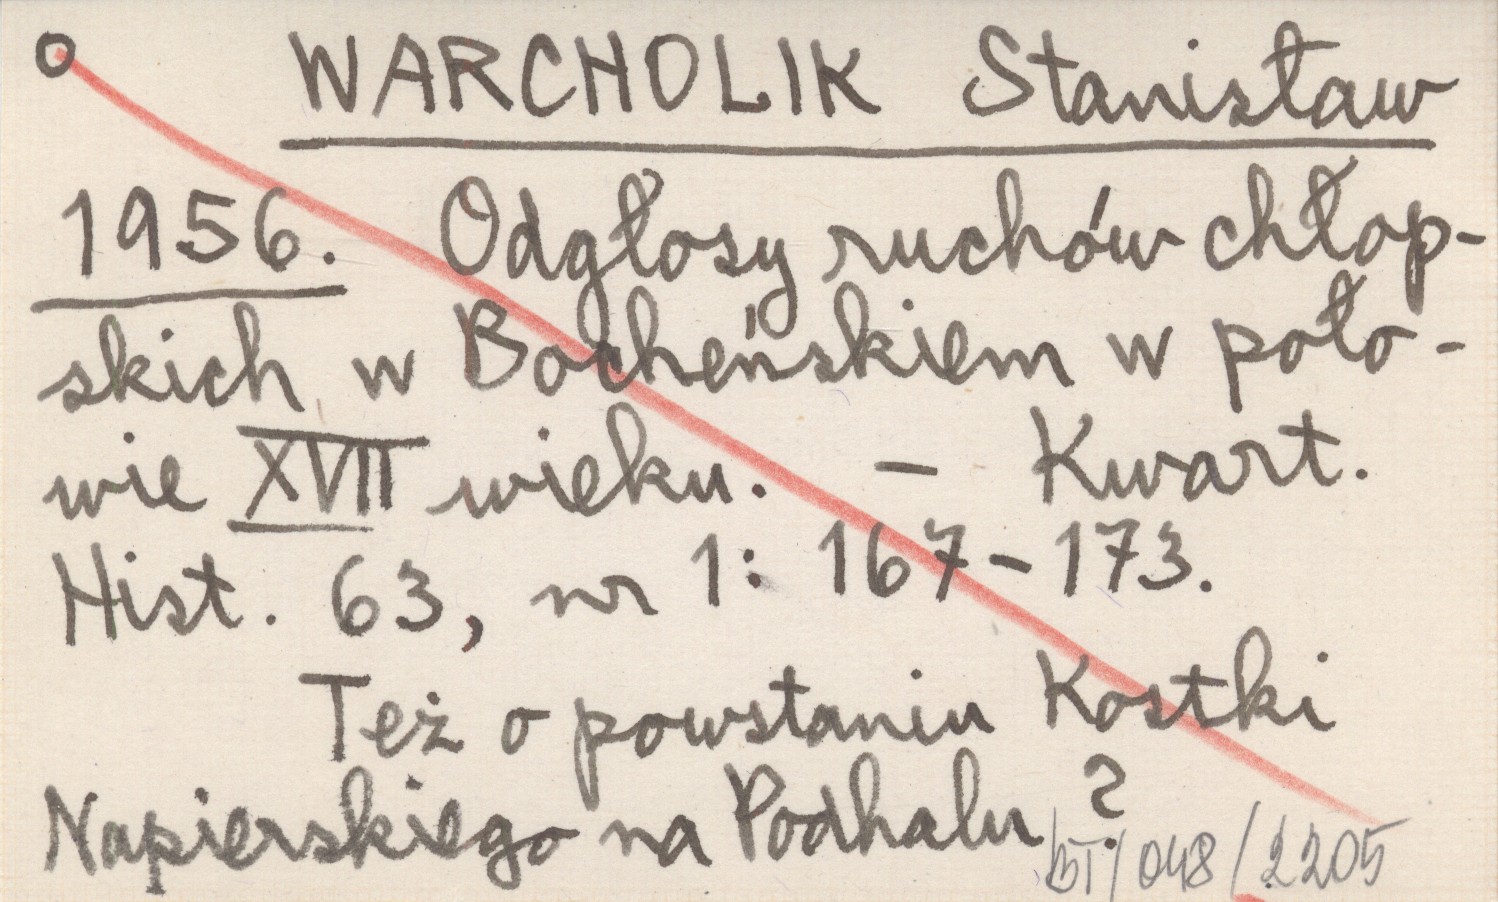 WARCHOLIK Stanisław
1956. Odgłosy ruchów chłop-
skich w Bocheńskiem w poło-
wie XVII wieku. – Kwart.
Hist. 63, nr 1: 167–173.
Też o powstaniu Kostki
Napierskiego na Podhalu?
BT/048/2205